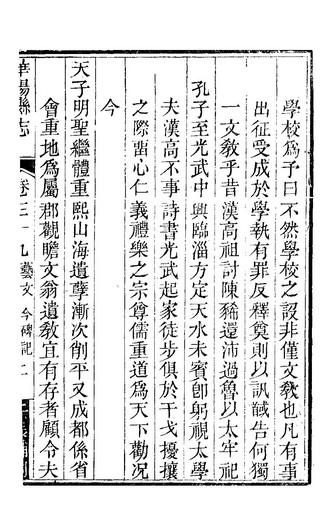 學校爲予曰不然學校之設非僅文敎也凡有事
出征受成於學執有罪反釋奠則以訊馘告何獨
一文敎乎昔漢高祖討陳豨還沛過魯以太牢祀
孔子至光武中興臨淄方定天水未賓卽躬視太學
夫漢高不事詩書光武起家徒步俱於干戈擾攘
之際畱心仁義禮樂之宗尊儒重道爲天下勸况
今
天子明聖繼體重熙山海遺孽漸次削平又成都係省
會重地爲屬郡觀瞻文翁遺敎宜有存者顧令夫
華陽縣志
卷三十九藝文 今碑記 二